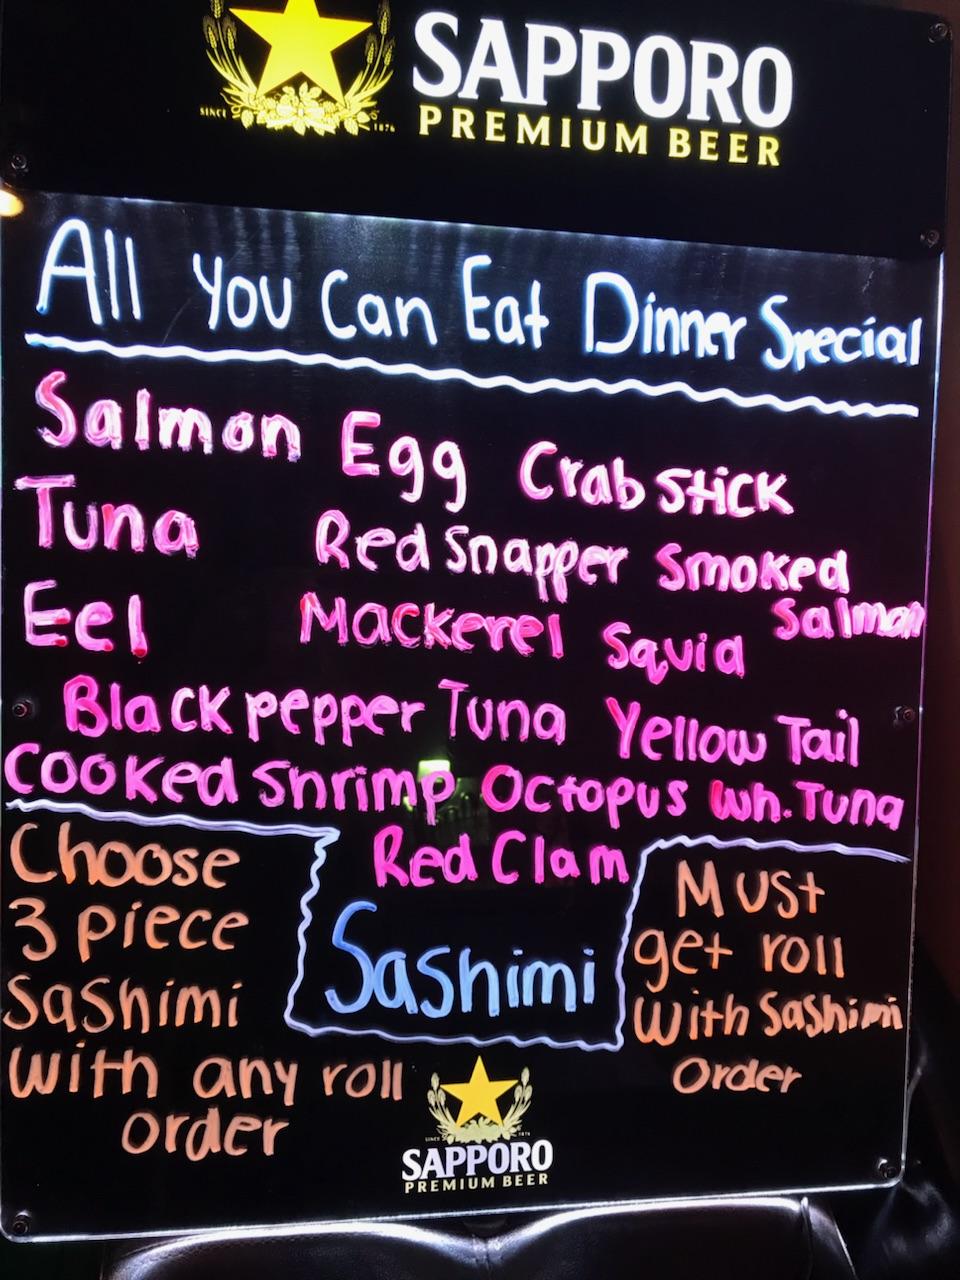 SAPPORO
SINCE 1876
PREMIUM BEER
All You Can Eat Dinner Special
Salmon Egg Crab stick
Tuna Red Snapper Smoked Salmon
Eel Mackerel Squid
Black pepper Tuna Yellow Tail
Cooked Shrimp Octopus Wh. Tuna
Red Clam
Choose
3 piece
Sashimi
with any roll
order
Sashimi
Must
get roll
with Sashimi
order
SINCE 1876
SAPPORO
PREMIUM BEER